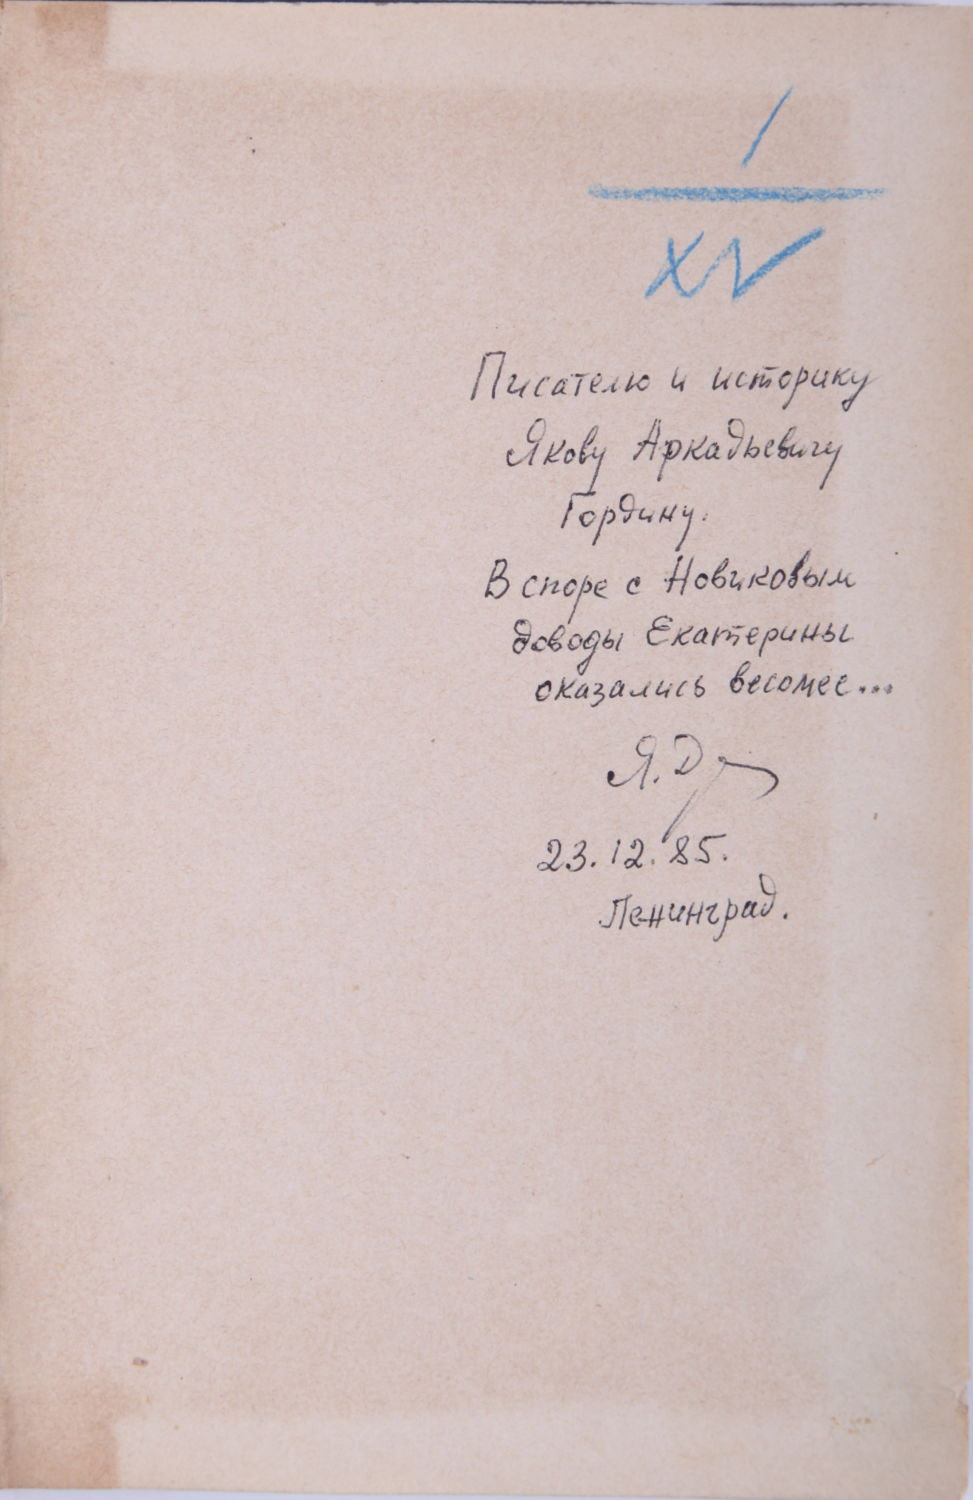 /
XV
Писателю и историку
Якову Аркадьевичу
Гордину.
В споре с Новиковым
доводы Екатерины
оказались весомее...
Я. Д
23.12.85.
Ленинград.